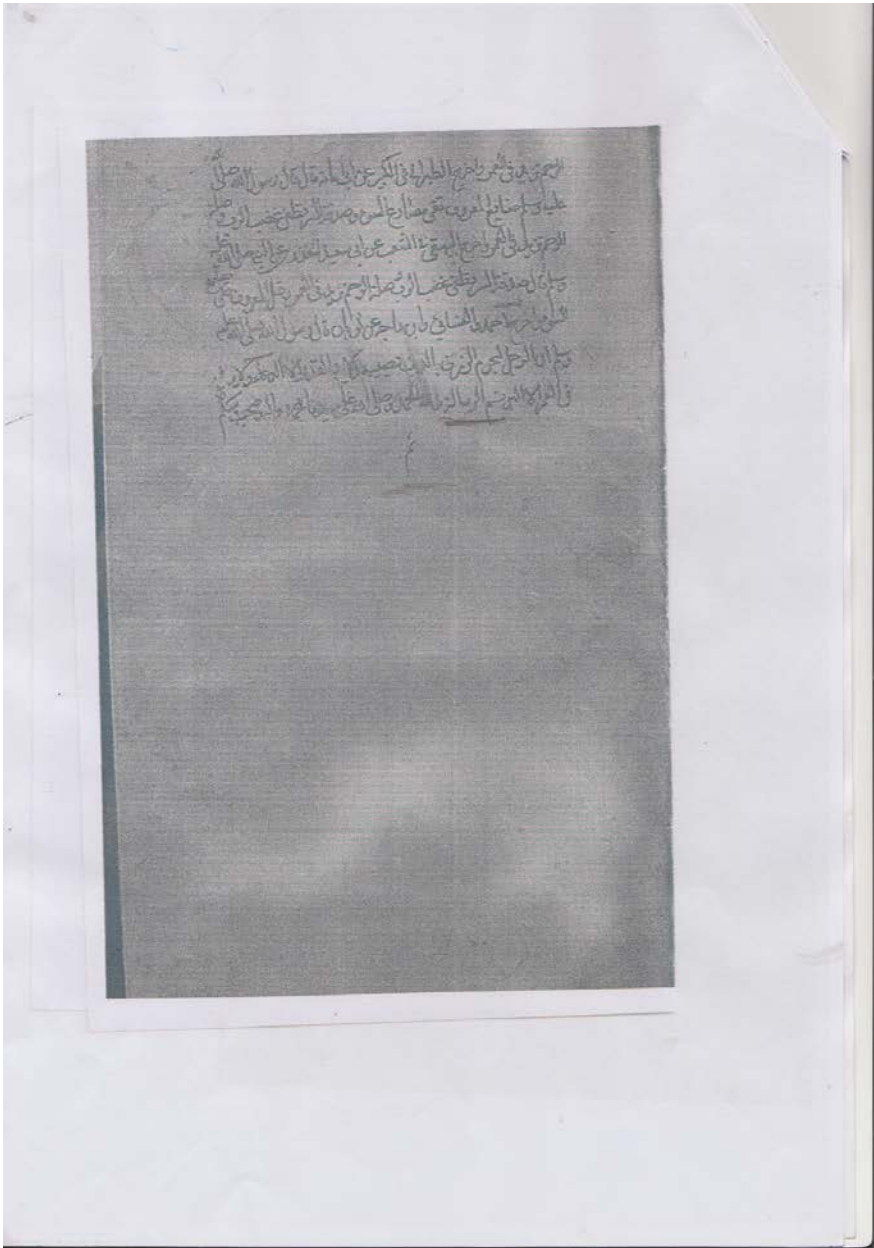 الرحم تزيد في العمر واخرج الطبراني في الكبير عن ابي امامة قال قال رسول الله صلى الله
عليه وسلم صنايع المعروف تقي مصارع السوء وصدقة السر تطفي غضب الرب وصلة
الرحم تزيد في العمر واخرج البيهقي في الشعب عن ابي سعيد الخدري عن النبي صلى الله عليه
وسلم قال صدقة السر تطفي غضب الرب وصلة الرحم تزيد في العمر وفعل المعروف يقي
السوء واخرج احمد والنسائي وابن ماجه عن ثوبان قال قال رسول الله صلى الله عليه
وسلم ان الرجل ليحرم الرزق بالذنب يصيبه ولا يرد القدر الا الدعاء ولا يزيد
في العمر الا البر تتم الرسالة وصلى الله على سيدنا محمد واله وصحبه وسلم
تم